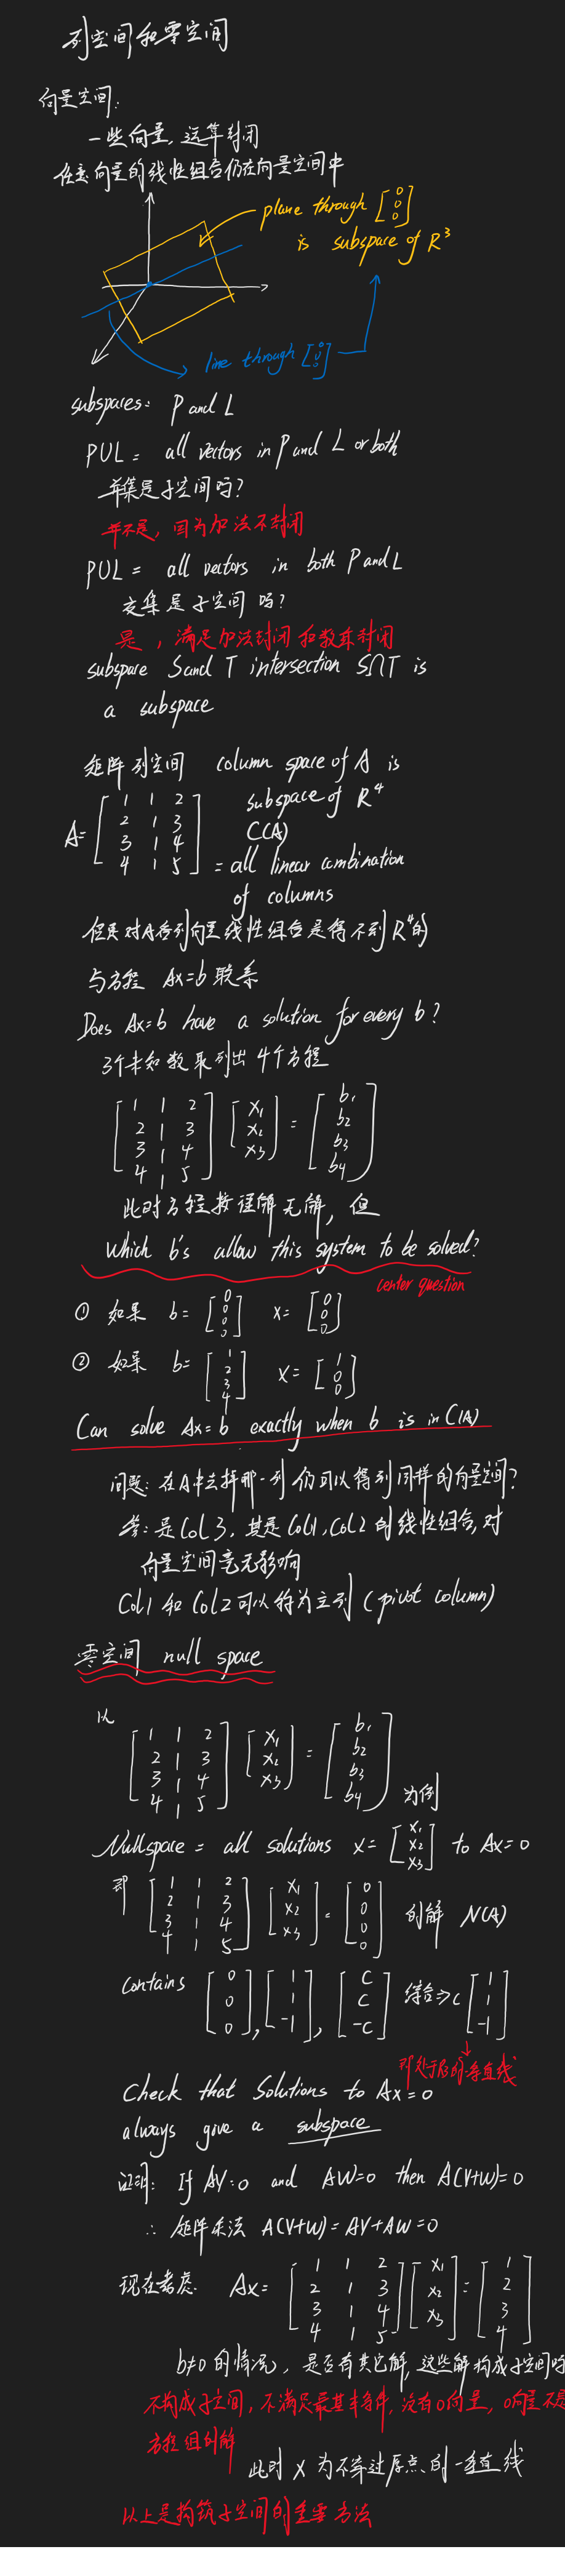 列空间和零空间
向量空间:
一些向量,运算封闭
任意向量的线性组合仍在向量空间中
plane through [0 0 0]
is subspace of R³
line through [0 0 0]
subspaces: P and L
PUL = all vectors in P and L or both
并集是子空间吗?
并不是,因为加法不封闭
PUL = all vectors in both P and L
交集是子空间吗?
是,满足加法封闭和数乘封闭
subspace S and T intersection S∩T is
a subspace
矩阵列空间 column space of A is
subspace of R⁴
A= [1 1 2; 2 1 3; 3 1 4; 4 1 5] C(A)
= all linear combination
of columns
但是对A各列向量线性组合是得不到R⁴的
与方程 Ax=b 联系
Does Ax=b have a solution for every b?
3个未知数取列出4个方程
[1 1 2; 2 1 3; 3 1 4; 4 1 5] [x₁ x₂ x₃] = [b₁ b₂ b₃ b₄]
此时方程按理解无解,但
which b's allow this system to be solved?
center question
① 如果 b= [0 0 0 0] x= [0 0 0]
② 如果 b= [1 2 3 4] x= [1 0 0]
Can solve Ax=b exactly when b is in C(A)
问题:在A中去掉那一列仍可以得到同样的向量空间?
答:是Col 3,其是Col1,Col2的线性组合,对
向量空间毫无影响
Col1 和 Col2 可以称为主列 (pivot column)
零空间 null space
以
[1 1 2; 2 1 3; 3 1 4; 4 1 5] [x₁ x₂ x₃] = [b₁ b₂ b₃ b₄] 为例
Nullspace = all solutions x= [x₁ x₂ x₃] to Ax=0
即 [1 1 2; 2 1 3; 3 1 4; 4 1 5] [x₁ x₂ x₃] = [0 0 0 0] 的解 N(A)
contains [0 0 0], [1 1 -1], [C C -C] 综合⇒ C [1 1 -1]
Check that Solutions to Ax=0
always give a subspace
证明: If AV=0 and AW=0 then A(V+W)=0
∴ 矩阵乘法 A(V+W)=AV+AW=0
现在考虑. Ax= [1 1 2; 2 1 3; 3 1 4; 4 1 5] [x₁ x₂ x₃] = [1 2 3 4]
b≠0 的情况,是否有其它解,这些解构成子空间吗
不构成子空间,不满足最基本条件,没有0向量,0向量不是
方程组的解
此时 X 为不穿过原点的一条直线
以上是构筑子空间的重要方法